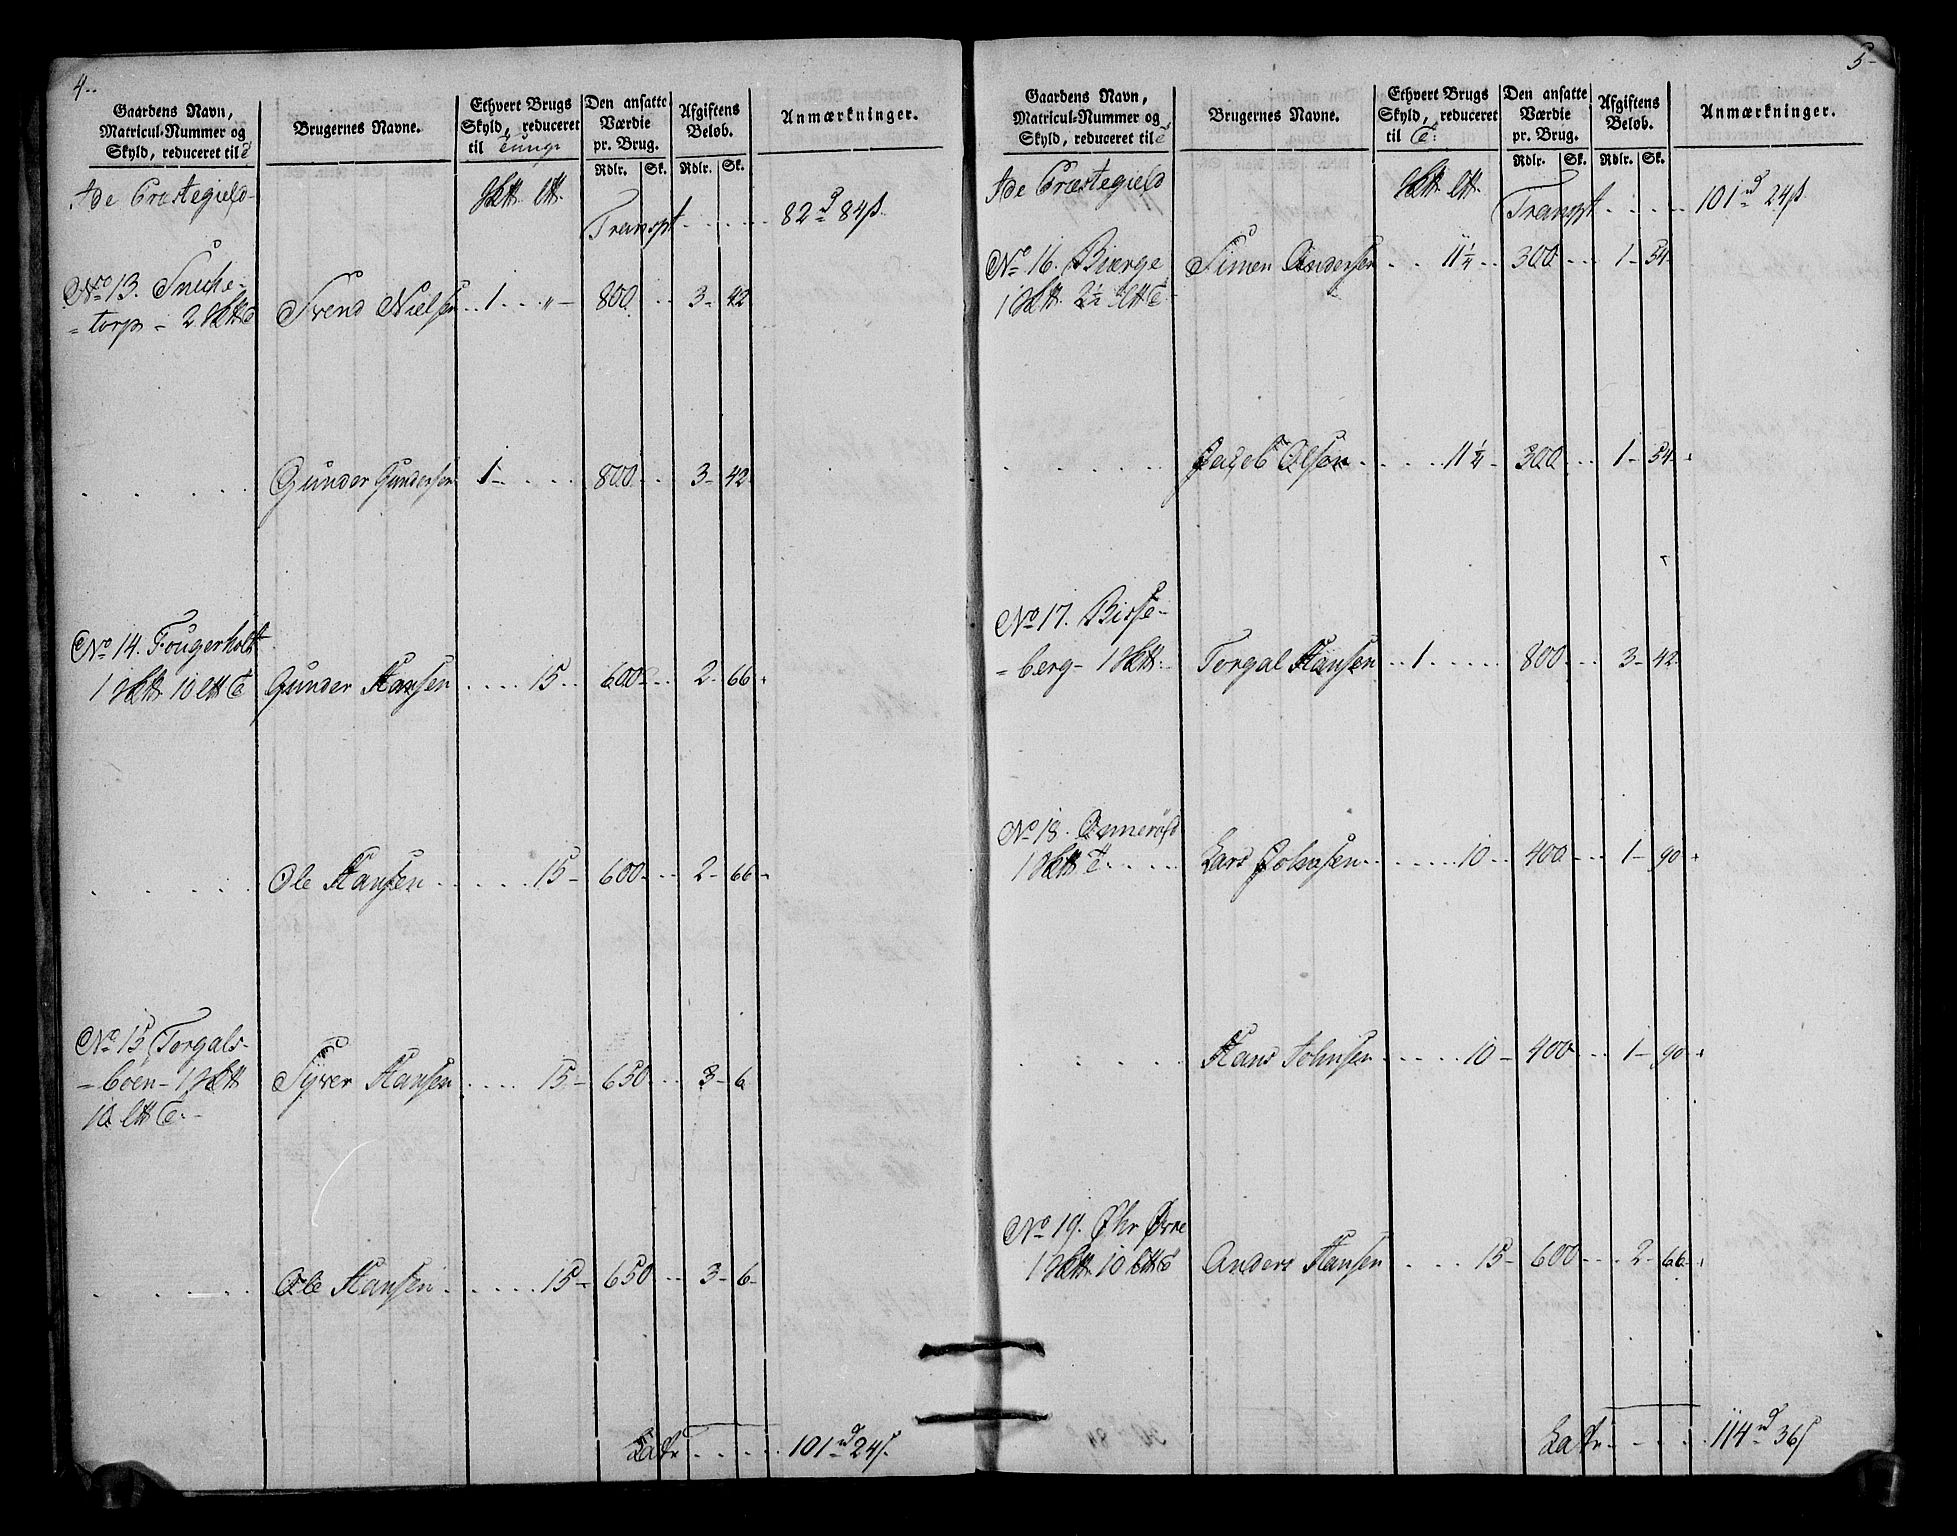 4..
Gaardens Navn,
Matricul-Nummer og
Skyld, reduceret til
Brugernes Navne.
Ethvert Brugs
Skyld, reduceret
til Tunge
Den ansatte
Værdie
pr. Brug.
Rdlr. Sk.
Afgiftens
Beløb.
Rdlr. Sk.
Anmærkninger.
Ide Præstegield
Transpt . . . . . 82 84ß.
No 13. Sneche-
=torp - 2 Svend Nielsen 1 " 800 3- 42
Gunder Gundersen 1- 800 3- 42
No 14. Fougerholt
1 10 Gunder Hansen 15 600 2- 66
Ole Hansen 15 600 2- 66
No 15 Torgals-
=böen- 1 Syver Hansen 15 650 3- 6
10
Ole Hansen 15 650 3- 6
Latr. . . . 101 24ß.
5-
Gaardens Navn,
Matricul-Nummer og
Skyld, reduceret til
Brugernes Navne.
Ethvert Brugs
Skyld, reduceret
til
Den ansatte
Værdie
pr. Brug.
Rdlr. Sk.
Afgiftens
Beløb.
Rdlr. Sk.
Anmærkninger.
Ide Præstegield
Transpt . . . . . 101 24ß.
No 16. Bierge Simen Andersen 11¼ 300 1- 54
1 2½
Jacob Olsen 11¼ 300 1- 54
No 17. Bisse-
=berg- 1 Torgal Hansen 1 800 3- 42
No 18. Onneröd
1 Lars Johnsen 10 400 1- 90
Hans Johnsen 10 400 1- 90
No 19. Øhr Øvre
1 10 Anders Hansen 15 600 2- 66
Latr. . . . 114 36ß